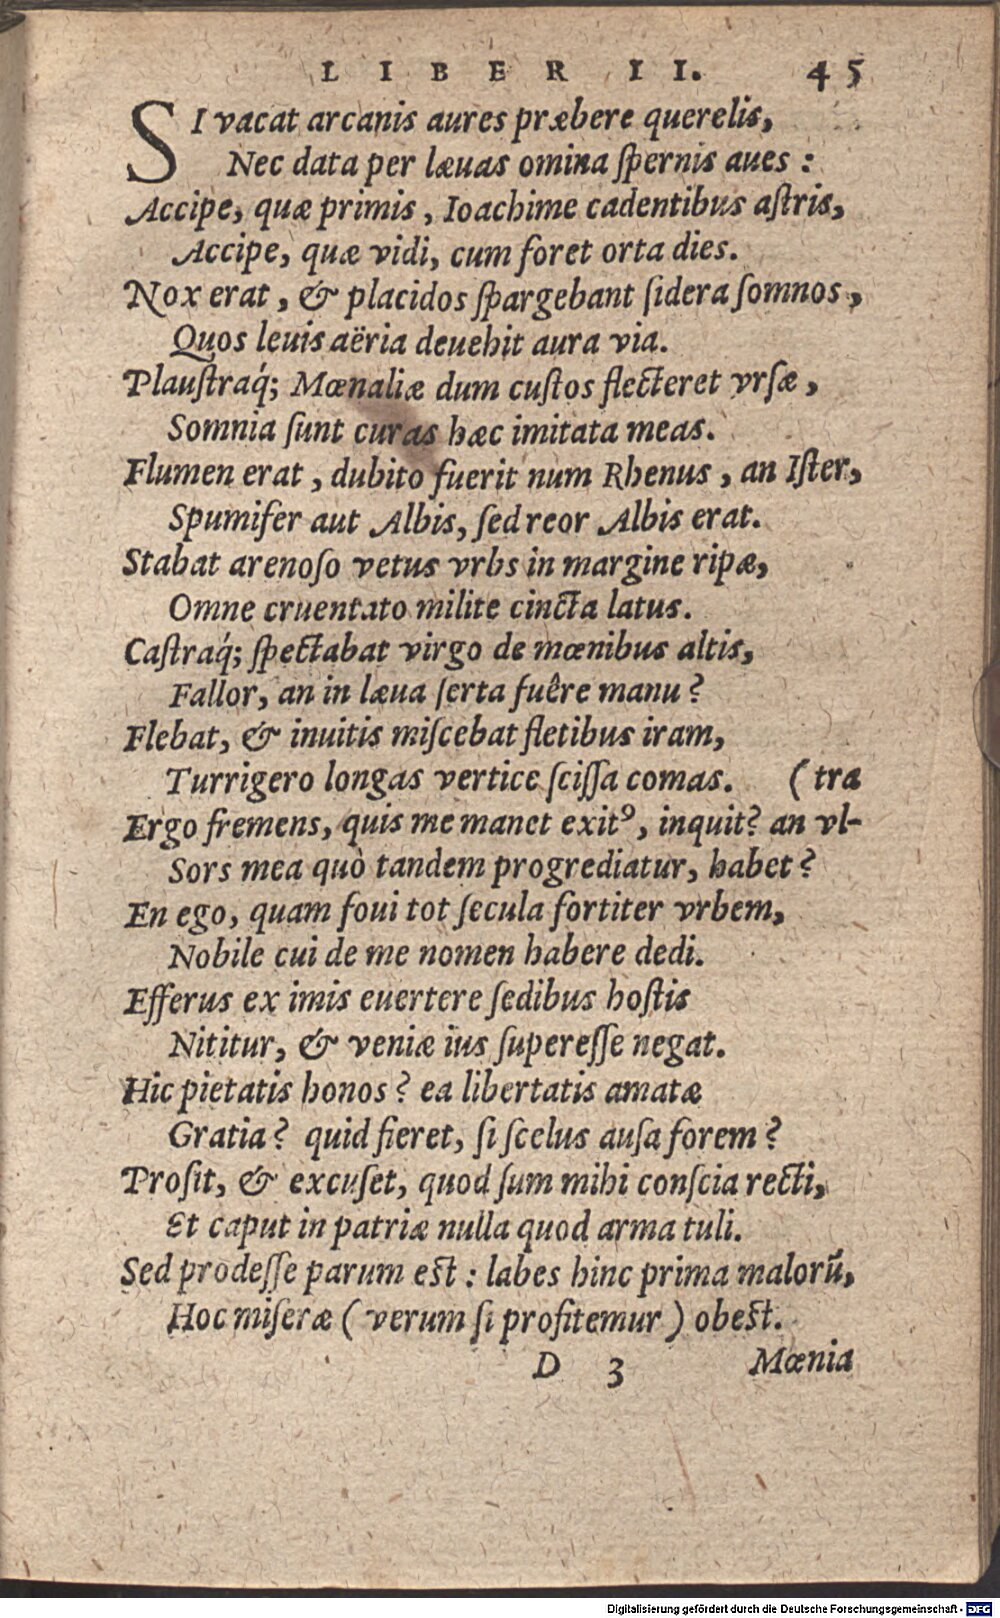 LIBER II. 45
SI vacat arcanis aures præbere querelis,
Nec data per læuas omina ſpernis aues :
Accipe, quæ primis, Ioachime cadentibus aſtris,
Accipe, quæ vidi, cum foret orta dies.
Nox erat, & placidos ſpargebant ſidera ſomnos,
Quos leuis aëria deuehit aura via.
Plauſtraq́; Mœnaliæ dum cuſtos flecteret vrſæ,
Somnia ſunt curas hæc imitata meas.
Flumen erat, dubito fuerit num Rhenus, an Iſter,
Spumifer aut Albis, ſed reor Albis erat.
Stabat arenoſo vetus vrbs in margine ripæ,
Omne cruentato milite cincta latus.
Caſtraq́; ſpectabat virgo de mœnibus altis,
Fallor, an in læua ſerta fuêre manu?
Flebat, & inuitis miſcebat fletibus iram,
Turrigero longas vertice ſciſſa comas. (tra
Ergo fremens, quis me manet exitꝰ, inquit? an vl-
Sors mea quò tandem progrediatur, habet?
En ego, quam foui tot ſecula fortiter vrbem,
Nobile cui de me nomen habere dedi.
Efferus ex imis euertere ſedibus hoſtis
Nititur, & veniæ ius ſupereſſe negat.
Hic pietatis honos? ea libertatis amatæ
Gratia? quid fieret, ſi ſcelus auſa forem?
Proſit, & excuſet, quod ſum mihi conſcia recti,
Et caput in patriæ nulla quod arma tuli.
Sed prodeſſe parum eſt : labes hinc prima malorū,
Hoc miſeræ (verum ſi profitemur) obeſt.
D 3 Mœnia
Digitalisierung gefördert durch die Deutsche Forschungsgemeinschaft - DFG